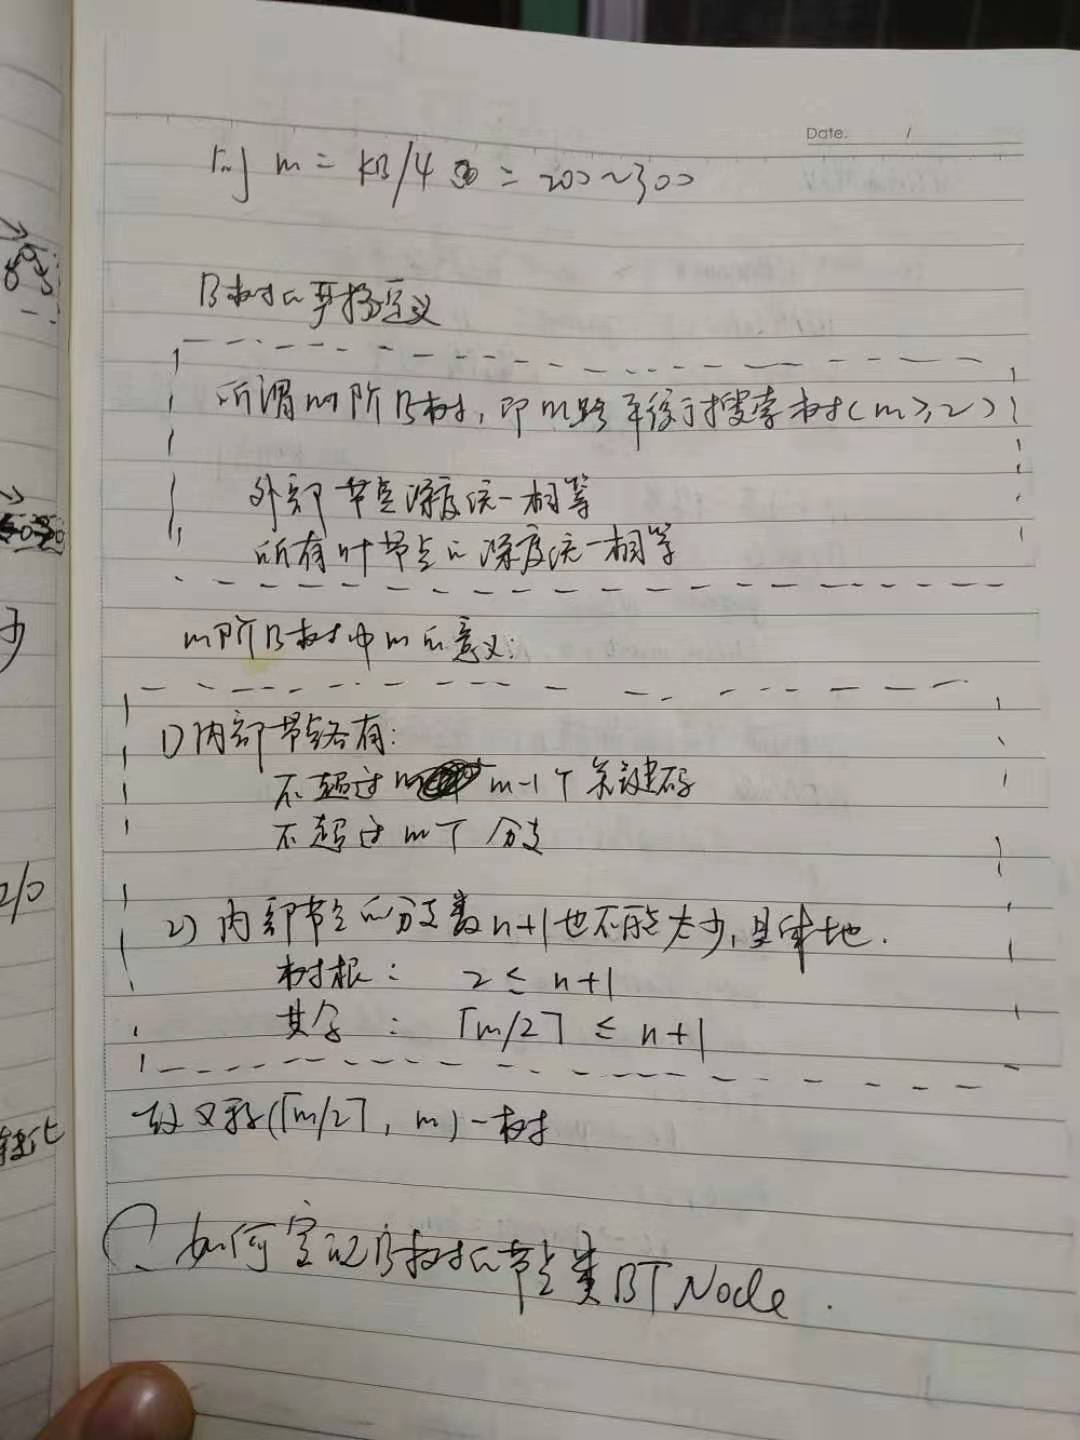 Date. /
则 m = KB/4 = 200~300
B树的严格定义
所谓m阶B树，即m路平衡搜索树(m≥2)
外部节点深度统一相等
所有叶节点的深度统一相等
m阶B树中m的意义:
1)内部节点各有:
不超过 m-1个关键码
不超过m个分支
2)内部节点的分支数n+1也不能太少,具体地.
树根: 2 ≤ n+1
其余: ⌈m/2⌉ ≤ n+1
故又称(⌈m/2⌉, m)-树
如何实现B树的节点类BTNode.